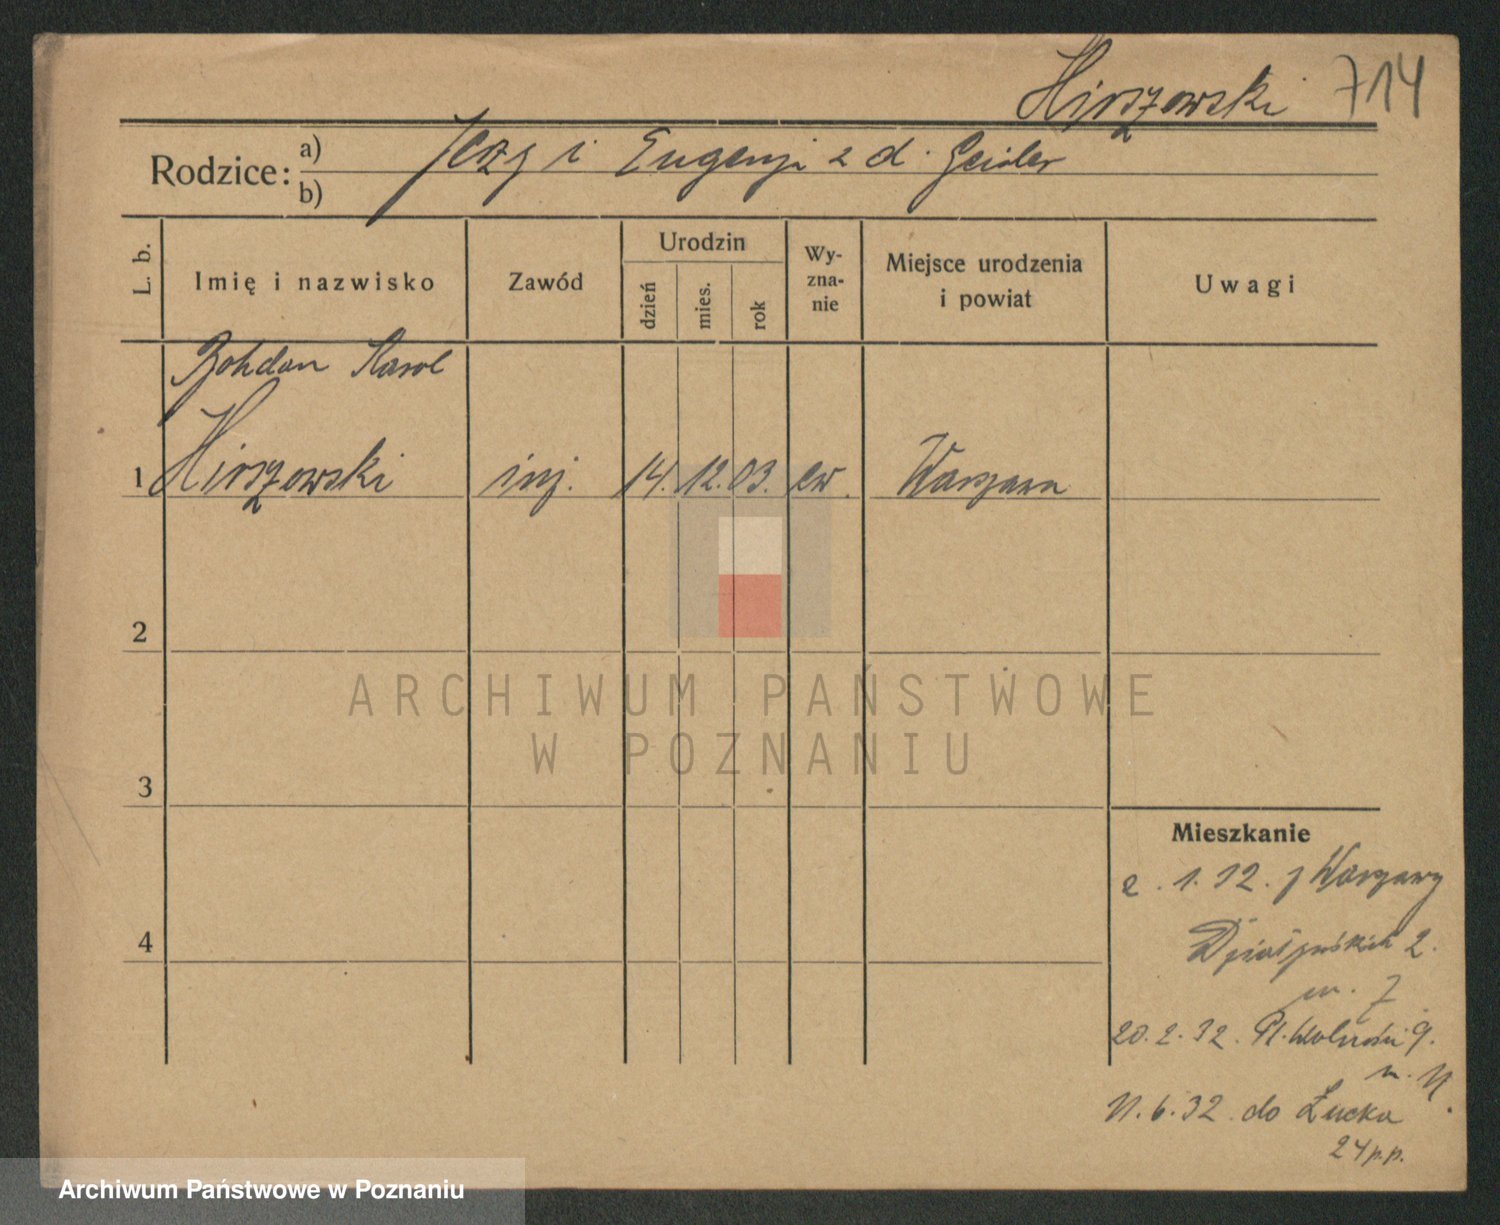 Hirszowski 714
Rodzice: a) b) Jerzy i Eugenji z d. Geisler
L. b.
Imię i nazwisko
Zawód
Urodzin
dzień
mies.
rok
Wy-
zna-
nie
Miejsce urodzenia
i powiat
Uwagi
Bohdan Karol
1 Hirszowski inj. 14. 12. 03. ew. Warszawa
2
ARCHIWUM PAŃSTWOWE
W POZNANIU
3
Mieszkanie
2. 1. 32. z Warszawy
Działyńskich 2.
4
m. 7
20. 2. 32. Pl. Wolności 9.
m. 11.
11. 6. 32. do Łucka
24 p.p.
Archiwum Państwowe w Poznaniu